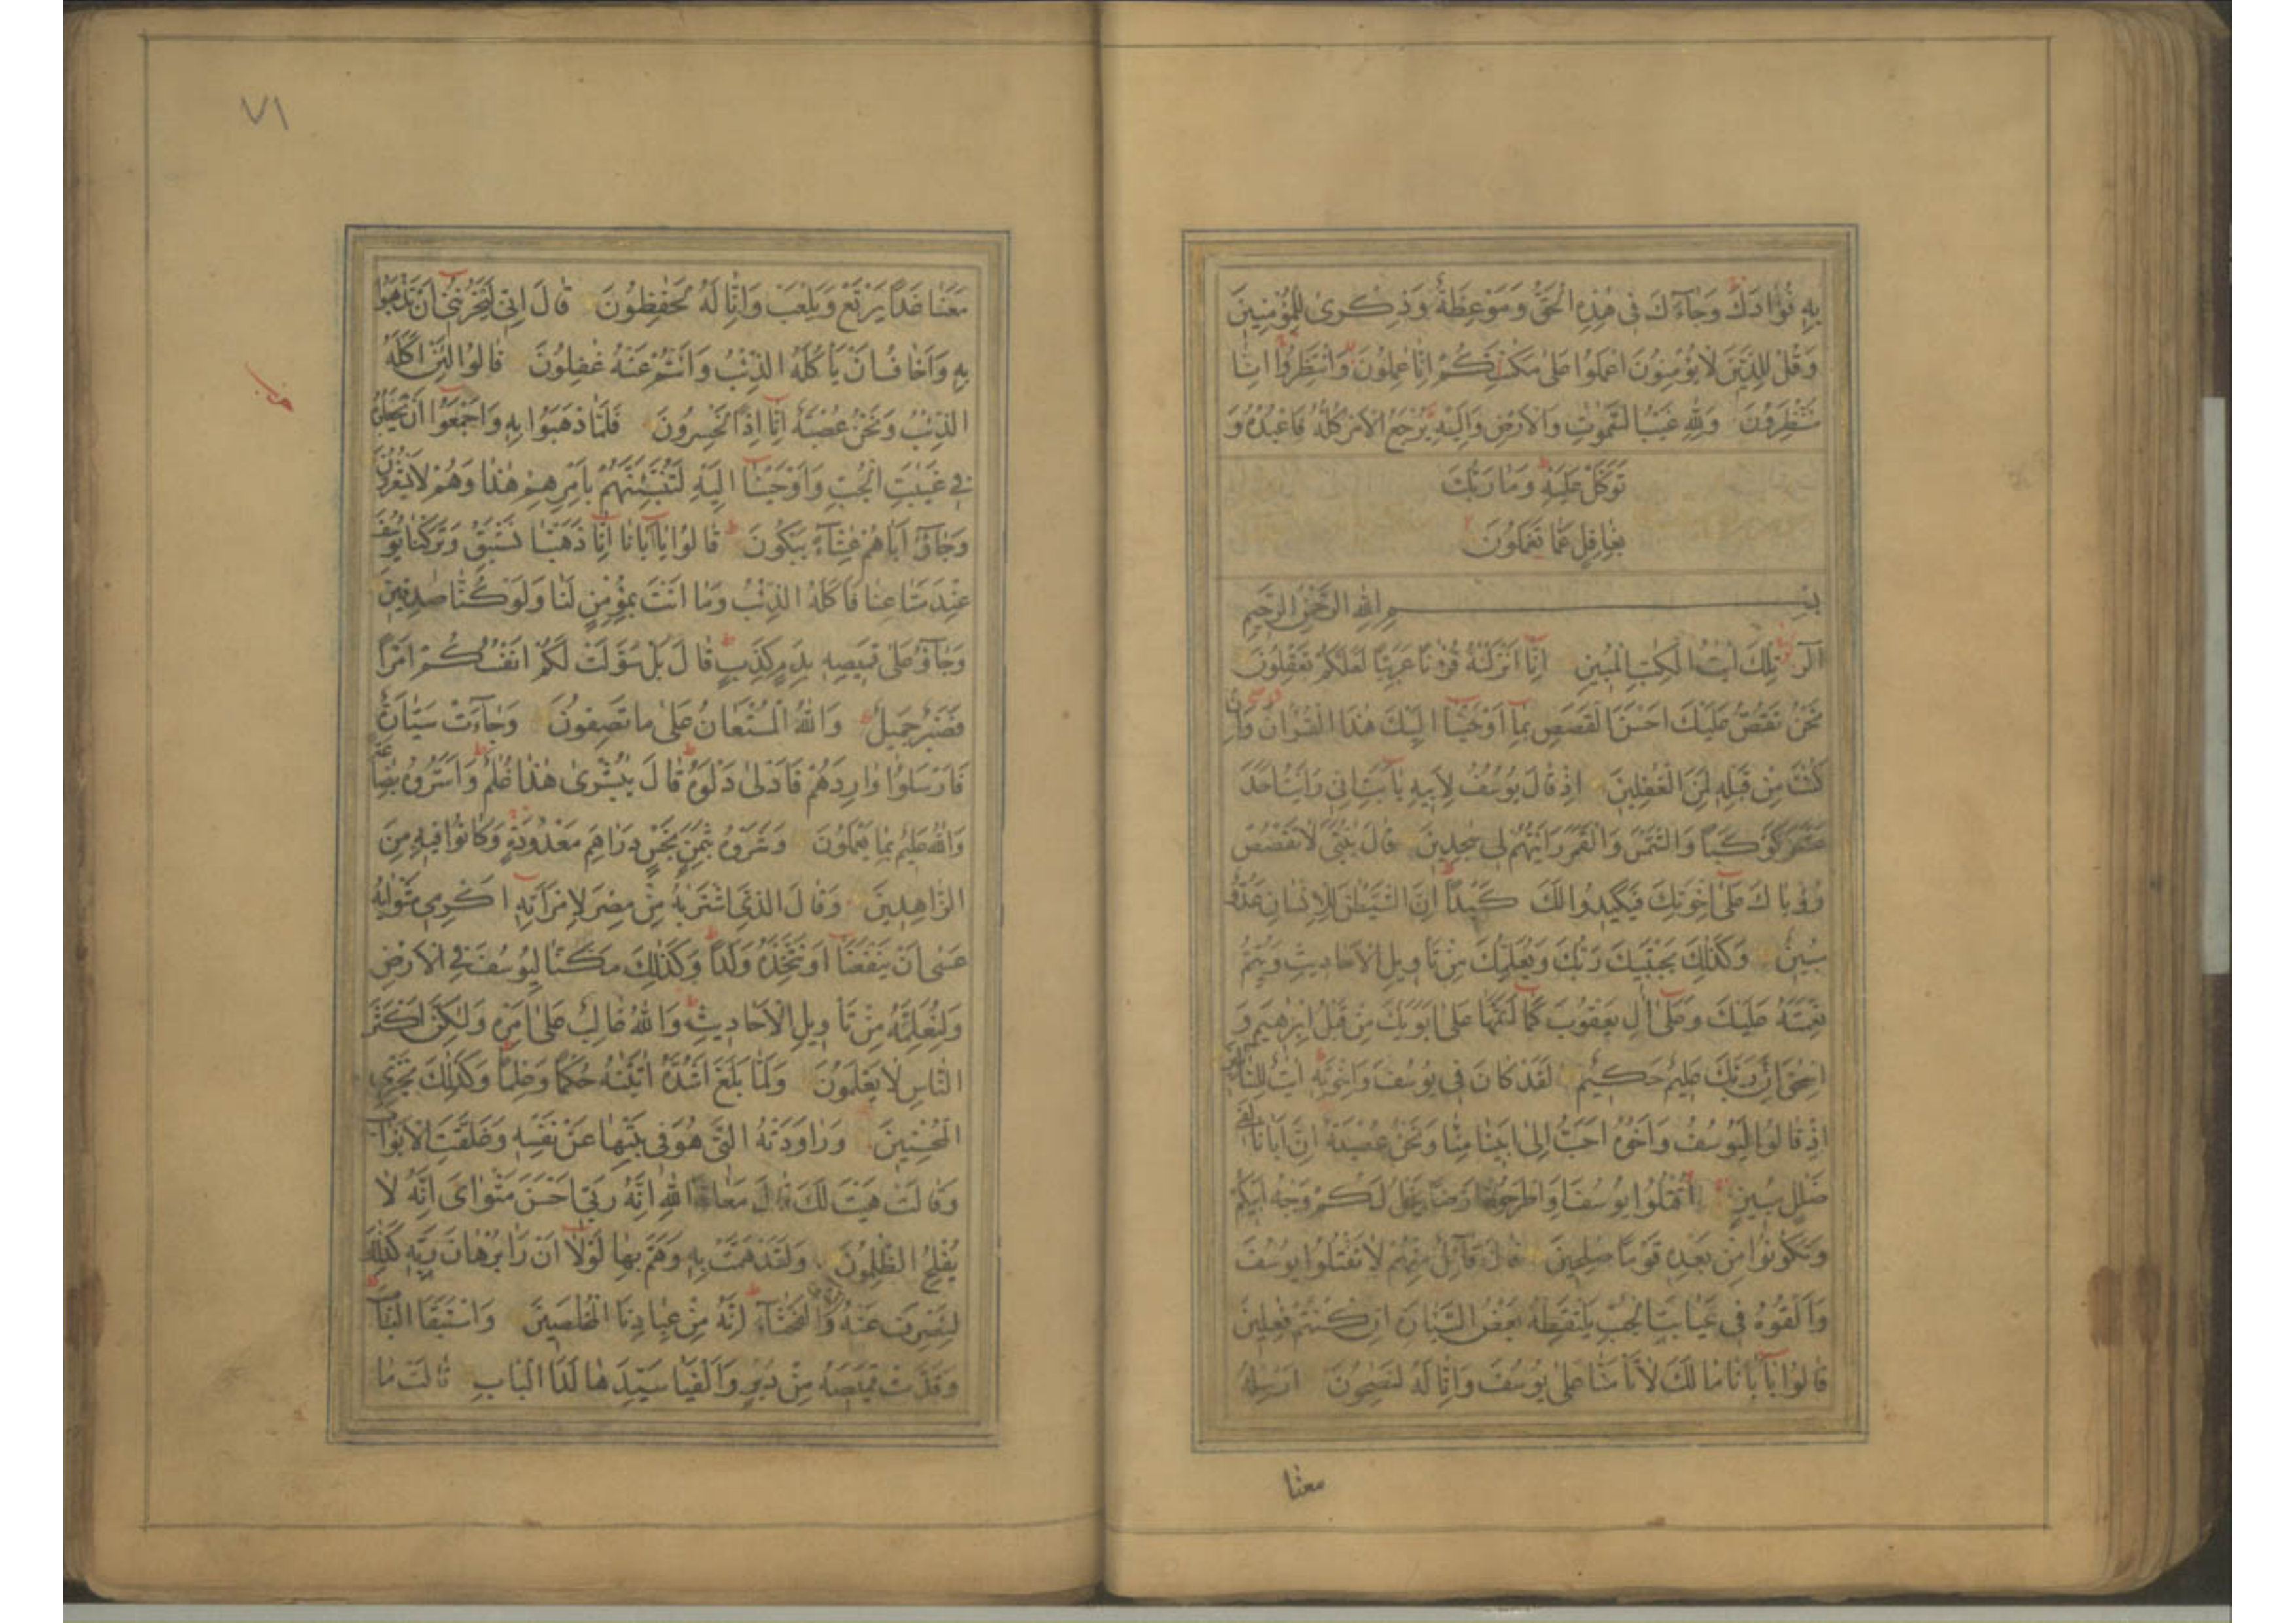 بِهِ فُؤَادَكَ وَجَآءَكَ فِى هٰذِهِ الْحَقُّ وَمَوْعِظَةٌ وَذِكْرٰى لِلْمُؤْمِنِينَ
وَقُلْ لِلَّذِينَ لَا يُؤْمِنُونَ اعْمَلُوا عَلٰى مَكَنَتِكُمْ اِنَّا عٰمِلُونَ وَانْتَظِرُوا اِنَّا
مُنْتَظِرُونَ وَلِلّٰهِ غَيْبُ السَّمٰوٰتِ وَالْاَرْضِ وَاِلَيْهِ يُرْجَعُ الْاَمْرُ كُلُّهُ فَاعْبُدْهُ وَ
تَوَكَّلْ عَلَيْهِ وَمَا رَبُّكَ
بِغَافِلٍ عَمَّا تَعْمَلُونَ
بِسْمِ اللّٰهِ الرَّحْمٰنِ الرَّحِيمِ
الٓرٰ تِلْكَ اٰيٰتُ الْكِتٰبِ الْمُبِينِ اِنَّا اَنْزَلْنٰهُ قُرْءٰنًا عَرَبِيًّا لَعَلَّكُمْ تَعْقِلُونَ
نَحْنُ نَقُصُّ عَلَيْكَ اَحْسَنَ الْقَصَصِ بِمَآ اَوْحَيْنَآ اِلَيْكَ هٰذَا الْقُرْاٰنَ وَاِنْ
كُنْتَ مِنْ قَبْلِهِ لَمِنَ الْغٰفِلِينَ اِذْ قَالَ يُوسُفُ لِاَبِيهِ يٰٓاَبَتِ اِنِّى رَاَيْتُ اَحَدَ
عَشَرَ كَوْكَبًا وَالشَّمْسَ وَالْقَمَرَ رَاَيْتُهُمْ لِى سٰجِدِينَ قَالَ يٰبُنَىَّ لَا تَقْصُصْ
رُؤْيَاكَ عَلٰٓى اِخْوَتِكَ فَيَكِيدُوا لَكَ كَيْدًا اِنَّ الشَّيْطٰنَ لِلْاِنْسَانِ عَدُوٌّ
مُبِينٌ وَكَذٰلِكَ يَجْتَبِيكَ رَبُّكَ وَيُعَلِّمُكَ مِنْ تَاْوِيلِ الْاَحَادِيثِ وَيُتِمُّ
نِعْمَتَهُ عَلَيْكَ وَعَلٰٓى اٰلِ يَعْقُوبَ كَمَآ اَتَمَّهَا عَلٰٓى اَبَوَيْكَ مِنْ قَبْلُ اِبْرٰهِيمَ وَ
اِسْحٰقَ اِنَّ رَبَّكَ عَلِيمٌ حَكِيمٌ لَقَدْ كَانَ فِى يُوسُفَ وَاِخْوَتِهِ اٰيٰتٌ لِلسَّائِلِينَ
اِذْ قَالُوا لَيُوسُفُ وَاَخُوهُ اَحَبُّ اِلٰى اَبِينَا مِنَّا وَنَحْنُ عُصْبَةٌ اِنَّ اَبَانَا لَفِى
ضَلٰلٍ مُبِينٍ اُقْتُلُوا يُوسُفَ اَوِ اطْرَحُوهُ اَرْضًا يَخْلُ لَكُمْ وَجْهُ اَبِيكُمْ
وَتَكُونُوا مِنْ بَعْدِهِ قَوْمًا صٰلِحِينَ قَالَ قَآئِلٌ مِنْهُمْ لَا تَقْتُلُوا يُوسُفَ
وَاَلْقُوهُ فِى غَيَابَتِ الْجُبِّ يَلْتَقِطْهُ بَعْضُ السَّيَّارَةِ اِنْ كُنْتُمْ فٰعِلِينَ
قَالُوا يٰٓاَبَانَا مَا لَكَ لَا تَاْمَنَّا عَلٰى يُوسُفَ وَاِنَّا لَهُ لَنٰصِحُونَ اَرْسِلْهُ
معنا
٧١
مَعَنَا غَدًا يَرْتَعْ وَيَلْعَبْ وَاِنَّا لَهُ لَحٰفِظُونَ قَالَ اِنِّى لَيَحْزُنُنِىٓ اَنْ تَذْهَبُوا
بِهِ وَاَخَافُ اَنْ يَاْكُلَهُ الذِّئْبُ وَاَنْتُمْ عَنْهُ غٰفِلُونَ قَالُوا لَئِنْ اَكَلَهُ
الذِّئْبُ وَنَحْنُ عُصْبَةٌ اِنَّآ اِذًا لَخٰسِرُونَ فَلَمَّا ذَهَبُوا بِهِ وَاَجْمَعُوٓا اَنْ يَجْعَلُوهُ
فِى غَيٰبَتِ الْجُبِّ وَاَوْحَيْنَآ اِلَيْهِ لَتُنَبِّئَنَّهُمْ بِاَمْرِهِمْ هٰذَا وَهُمْ لَا يَشْعُرُونَ
وَجَآؤُ اَبَاهُمْ عِشَآءً يَبْكُونَ قَالُوا يٰٓاَبَانَآ اِنَّا ذَهَبْنَا نَسْتَبِقُ وَتَرَكْنَا يُوسُفَ
عِنْدَ مَتَاعِنَا فَاَكَلَهُ الذِّئْبُ وَمَا اَنْتَ بِمُؤْمِنٍ لَنَا وَلَوْ كُنَّا صٰدِقِينَ
وَجَآؤُ عَلٰى قَمِيصِهِ بِدَمٍ كَذِبٍ قَالَ بَلْ سَوَّلَتْ لَكُمْ اَنْفُسُكُمْ اَمْرًا
فَصَبْرٌ جَمِيلٌ وَاللّٰهُ الْمُسْتَعَانُ عَلٰى مَا تَصِفُونَ وَجَآءَتْ سَيَّارَةٌ
فَاَرْسَلُوا وَارِدَهُمْ فَاَدْلٰى دَلْوَهُ قَالَ يٰبُشْرٰى هٰذَا غُلٰمٌ وَاَسَرُّوهُ بِضَاعَةً
وَاللّٰهُ عَلِيمٌ بِمَا يَعْمَلُونَ وَشَرَوْهُ بِثَمَنٍ بَخْسٍ دَرَاهِمَ مَعْدُودَةٍ وَكَانُوا فِيهِ مِنَ
الزَّاهِدِينَ وَقَالَ الَّذِى اشْتَرٰيهُ مِنْ مِصْرَ لِامْرَاَتِهِٓ اَكْرِمِى مَثْوٰيهُ
عَسٰى اَنْ يَنْفَعَنَآ اَوْ نَتَّخِذَهُ وَلَدًا وَكَذٰلِكَ مَكَّنَّا لِيُوسُفَ فِى الْاَرْضِ
وَلِنُعَلِّمَهُ مِنْ تَاْوِيلِ الْاَحَادِيثِ وَاللّٰهُ غَالِبٌ عَلٰٓى اَمْرِهِ وَلٰكِنَّ اَكْثَرَ
النَّاسِ لَا يَعْلَمُونَ وَلَمَّا بَلَغَ اَشُدَّهُ اٰتَيْنٰهُ حُكْمًا وَعِلْمًا وَكَذٰلِكَ نَجْزِى
الْمُحْسِنِينَ وَرَاوَدَتْهُ الَّتِى هُوَ فِى بَيْتِهَا عَنْ نَفْسِهِ وَغَلَّقَتِ الْاَبْوَابَ
وَقَالَتْ هَيْتَ لَكَ قَالَ مَعَاذَ اللّٰهِ اِنَّهُ رَبِّىٓ اَحْسَنَ مَثْوَاىَ اِنَّهُ لَا
يُفْلِحُ الظّٰلِمُونَ وَلَقَدْ هَمَّتْ بِهِ وَهَمَّ بِهَا لَوْلَآ اَنْ رَاٰ بُرْهَانَ رَبِّهِ كَذٰلِكَ
لِنَصْرِفَ عَنْهُ السُّوءَ وَالْفَحْشَآءَ اِنَّهُ مِنْ عِبَادِنَا الْمُخْلَصِينَ وَاسْتَبَقَا الْبَابَ
وَقَدَّتْ قَمِيصَهُ مِنْ دُبُرٍ وَاَلْفَيَا سَيِّدَهَا لَدَا الْبَابِ قَالَتْ مَا